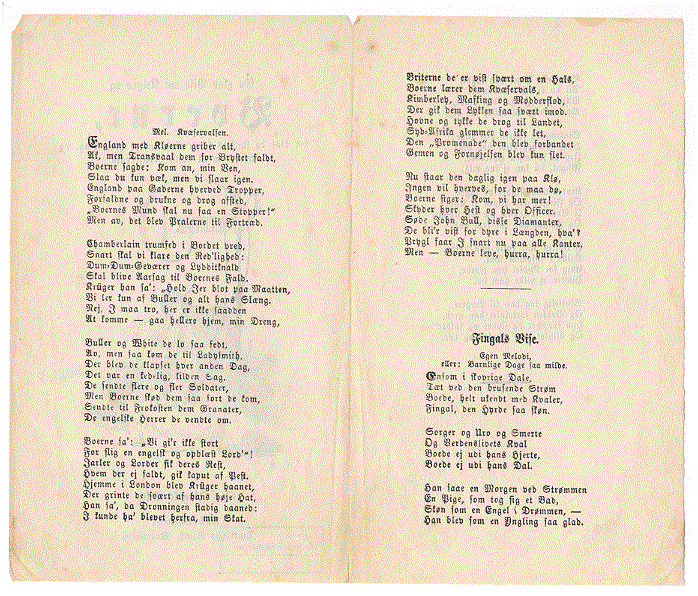 Mel. Kvæservalsen.
England med Kløerne griber alt,
Ak, men Transvaal dem for Brystet faldt,
Boerne sagde: Kom an, min Ven,
Slaa du kun væk, men vi slaar igen.
England paa Gaderne hverved Tropper,
Forfaldne og drukne og drog afsted,
„Boernes Mund skal nu faa en Stopper!"
Men av, det blev Pralerne til Fortræd.
Chamberlain trumfed i Bordet vred,
Snart skal vi klare den Red'lighed:
Dum-Dum-Geværer og Lydditknald
Skal blive Aarsag til Boernes Fald.
Krüger han sa': „Hold Jer blot paa Maatten,
Vi ler kun af Buller og alt hans Slæng.
Nej, I maa tro, her er ikke saadden
At komme — gaa hellere hjem, min Dreng,
Buller og White de lo saa fedt,
Av, men saa kom de til Ladysmith,
Der blev de klapset hver anden Dag,
Det var en kedelig, kilden Sag.
De sendte flere og fler Soldater,
Men Boerne skød dem saa fort de kom,
Sendte til Frokosten dem Granater,
De engelske Herrer de vendte om.
Boerne sa': „Vi gi'r ikke stort
For slig en engelsk og opblæst Lord"!
Jarler og Lorder fik deres Rest,
Hvem der ej faldt, gik kaput af Pest.
Hjemme i London blev Krüger haanet,
Der grinte de svært af hans høje Hat,
Han sa', da Dronningen stadig daaned:
I kunde ha' blevet herfra, min Skat.
Briterne de er vist svært om en Hals,
Boerne lærer dem Kvæservals,
Kimberley, Mafking og Modderflod,
Der gik dem Lykken saa svært imod.
Hovne og tykke de drog til Landet,
Syd-Afrika glemmer de ikke let,
Den „Promenade" den blev forbandet
Gemen og Fornøjelsen blev kun slet.
Nu staar den daglig igen paa Klø,
Ingen vil hverves, for de maa dø,
Boerne siger: Kom, vi har mer!
Skyder hver Hest og hver Officer.
Søde John Bull, disse Diamanter,
De bli'r vist for dyre i Længden, hva'?
Prygl faar I snart nu paa alle Kanter,
Men — Boerne leve, hurra, hurra!
Fingals Vise.
Egen Melodi,
eller: Barnlige Dage saa milde.
Ensom i skovrige Dale,
Tæt ved den brusende Strøm
Boede, helt ukendt med Kvaler,
Fingal, den Hyrde saa skøn.
Sorger og Uro og Smerte
Og Verdenslivets Kval
Boede ej udi hans Hjerte,
Boede ej udi hans Dal.
Han saae en Morgen ved Strømmen
En Pige, som tog sig et Bad,
Skøn som en Engel i Drømmen, —
Han blev som en Yngling saa glad.